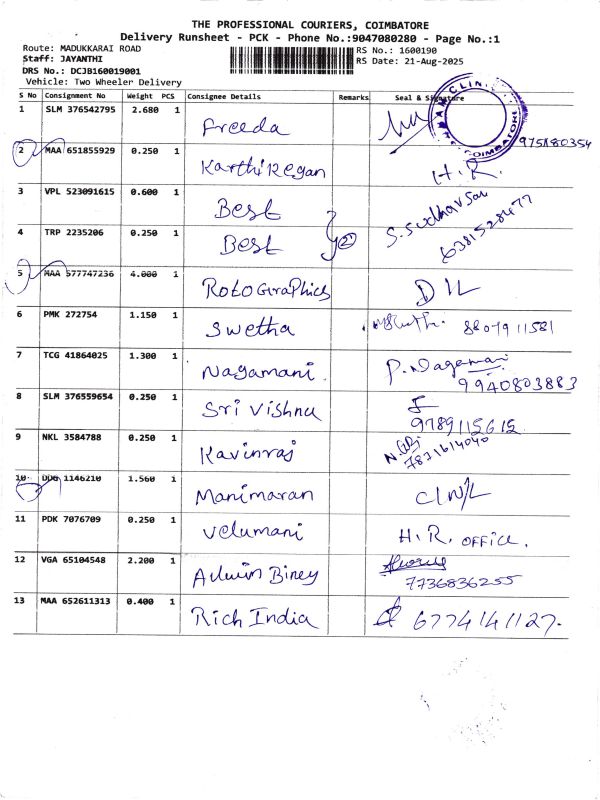 THE PROFESSIONAL COURIERS, COIMBATORE
Delivery Runsheet - PCK - Phone No.:9047080280 - Page No.:1
Route: MADUKKARAI ROAD RS No.: 1600190
Staff: JAYANTHI RS Date: 21-Aug-2025
DRS No.: DCJB160019001
Vehicle: Two Wheeler Delivery
S No Consignment No Weight PCS Consignee Details Remarks Seal & Signature
1 SLM 376542795 2.680 1 Freeda CLINI COIMBATORE
2 MAA 651855929 0.250 1 Karthikegan H.R. 975180354
3 VPL 523091615 0.600 1 Best S. Sudhavsan
4 TRP 2235206 0.250 1 Best 2 6381528477
5 MAA 577747236 4.000 1 Roto Graphics D/L
6 PMK 272754 1.150 1 Swetha 8807911581
7 TCG 41864025 1.300 1 Nagamani. P. Nagamani
9940803883
8 SLM 376559654 0.250 1 Sri Vishnu 9789115615
9 NKL 3584788 0.250 1 Kavinraj 7831614040
10 1146210 1.560 1 Manimaran
11 PDK 7076709 0.250 1 Velumani H.R. OFFICE.
12 VGA 65104548 2.200 1 Adwin Biney 7736836255
13 MAA 652611313 0.400 1 Rich India 6774141127.